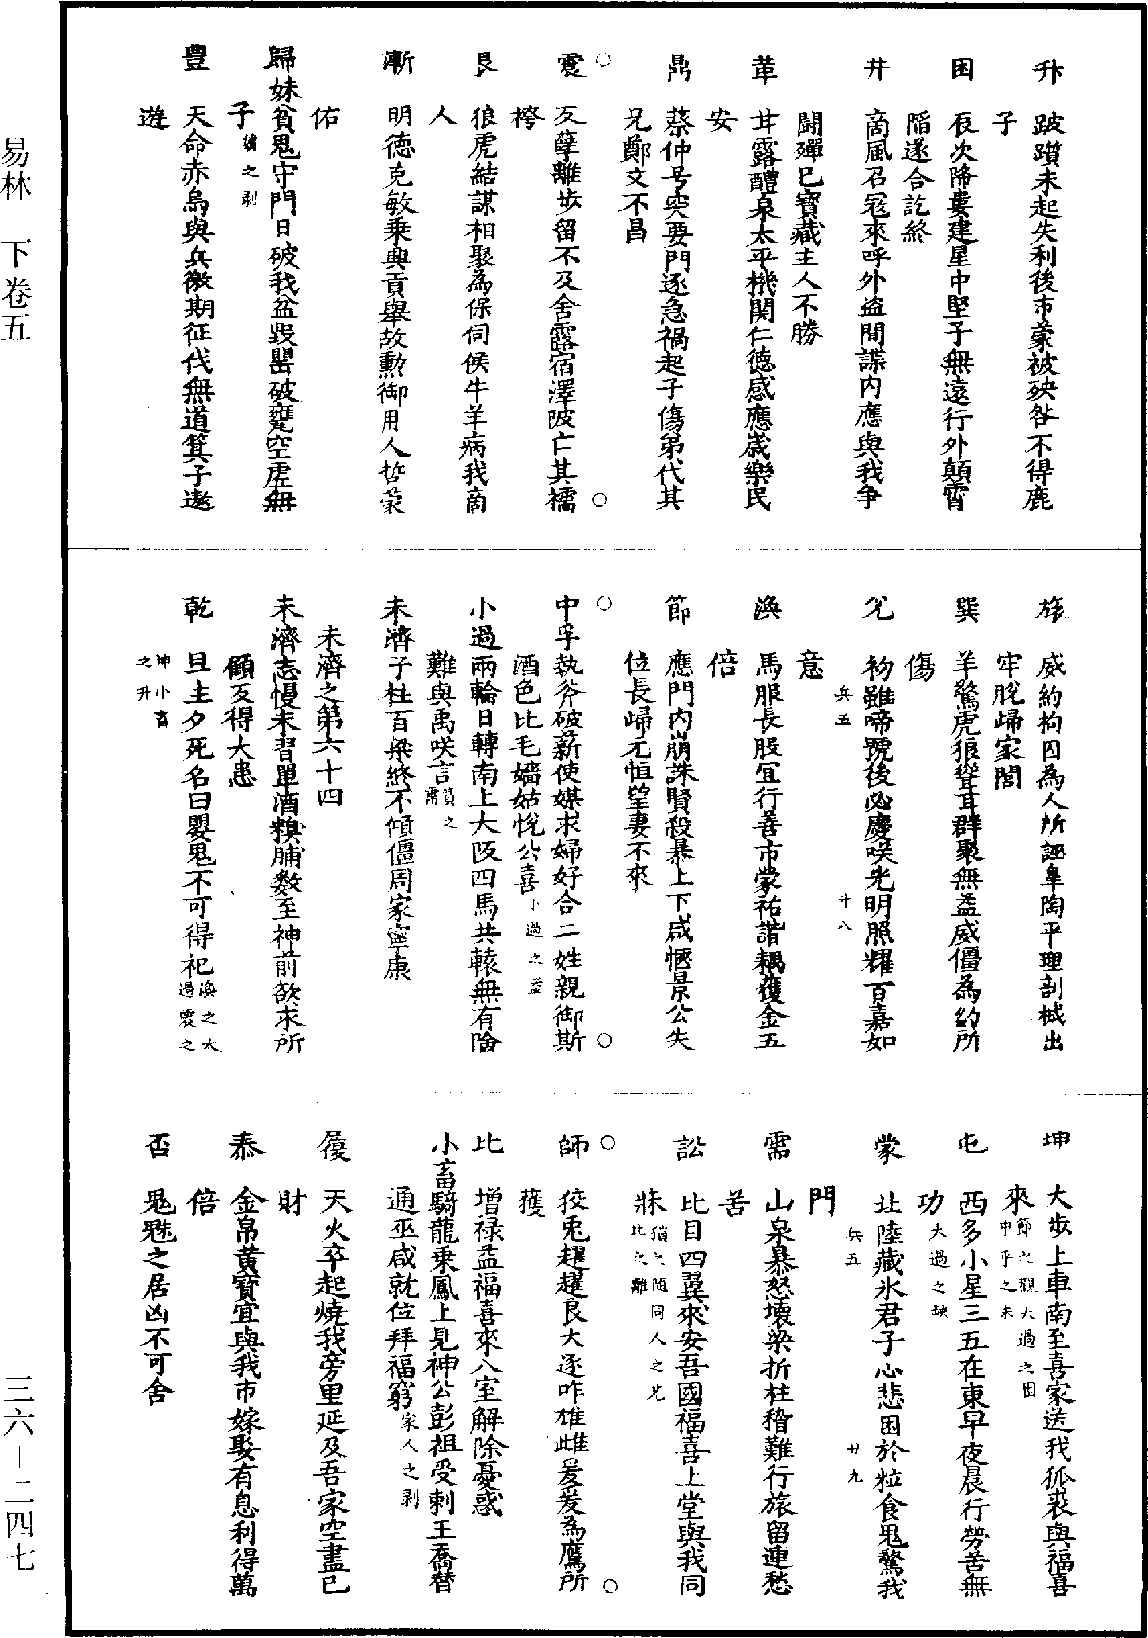 易林　下卷五
三六—二四七
升　跛躓未起失利後市蒙被殃咎不得鹿
子
困　辰次降婁建星中堅子無遠行外顛霄
陷遂合訖終
井　商風召冦來呼外盜間諜内應與我争
鬪殫已寳藏主人不勝
革　甘露醴泉太平機関仁德感應歳樂民
安
鼎　蔡仲号突要門逐急禍起子傷弟代其
兄鄭文不昌
震　叐孽離歩留不及舍露宿澤陂亡其襦
袴
艮　狼虎結謀相聚為保伺候牛羊病我商
人
漸　明德克敏乗輿貢舉故勲御用人哲蒙
佑
歸妹貧鬼守門日破我盆毀罌破甕空虚無
子
豊　天命赤烏與兵徼期征伐無道箕子遨
遊
旅　威約拘囚為人所誣皐陶平理剖械出
牢脱歸家閭
巽　羊驚虎狼聳耳群聚無益威僵為約所
傷
兊　礿雖啼號後必慶咲光明照耀百嘉如
意
兵五　廿八
渙　馬服長股宜行善市蒙祐諧耦獲金五
倍
節　應門内崩誅賢殺暴上下咸悖景公失
位長歸无恒望妻不來
中孚執斧破薪使媒求婦好合二姓親御斯
酒色比毛嬙姑悅公喜小過之益
小過兩輪日轉南上大阪四馬共轅無有險
難與禹咲言
未濟子柱百梁終不傾僵周家寧康
未濟之第六十四
未濟志慢未習單酒糗脯數至神前欲求所
願叐得大患
乾　旦主夕死名曰嬰鬼不可得祀渙之大
過震之
坤小畜
之升
坤　大歩上車南至喜家送我狐裘與福喜
來節之觀大過之困
中孚之未
屯　西多小星三五在東早夜晨行勞苦無
功大過之
蒙　北陸藏氷君子心悲困於粒食鬼驚我
門
兵五　廿九
需　山泉暴怒壊梁折柱稽難行旅留連愁
苦
訟　比目四翼來安吾國福喜上堂與我同
牀隨同人之
比之離
師　狡兎趯趯良犬逐咋雄雌爰爰為鷹所
獲
比　增禄益福喜來入室解除憂惑
小畜騎龍乗鳳上見神公彭祖受刺王喬替
通巫咸就位拜福窮家人之剥
履　天火卒起燒我旁里延及吾家空盡己
財
泰　金帛黄寳宜與我市嫁娶有息利得萬
倍
否　鬼魅之居凶不可舍